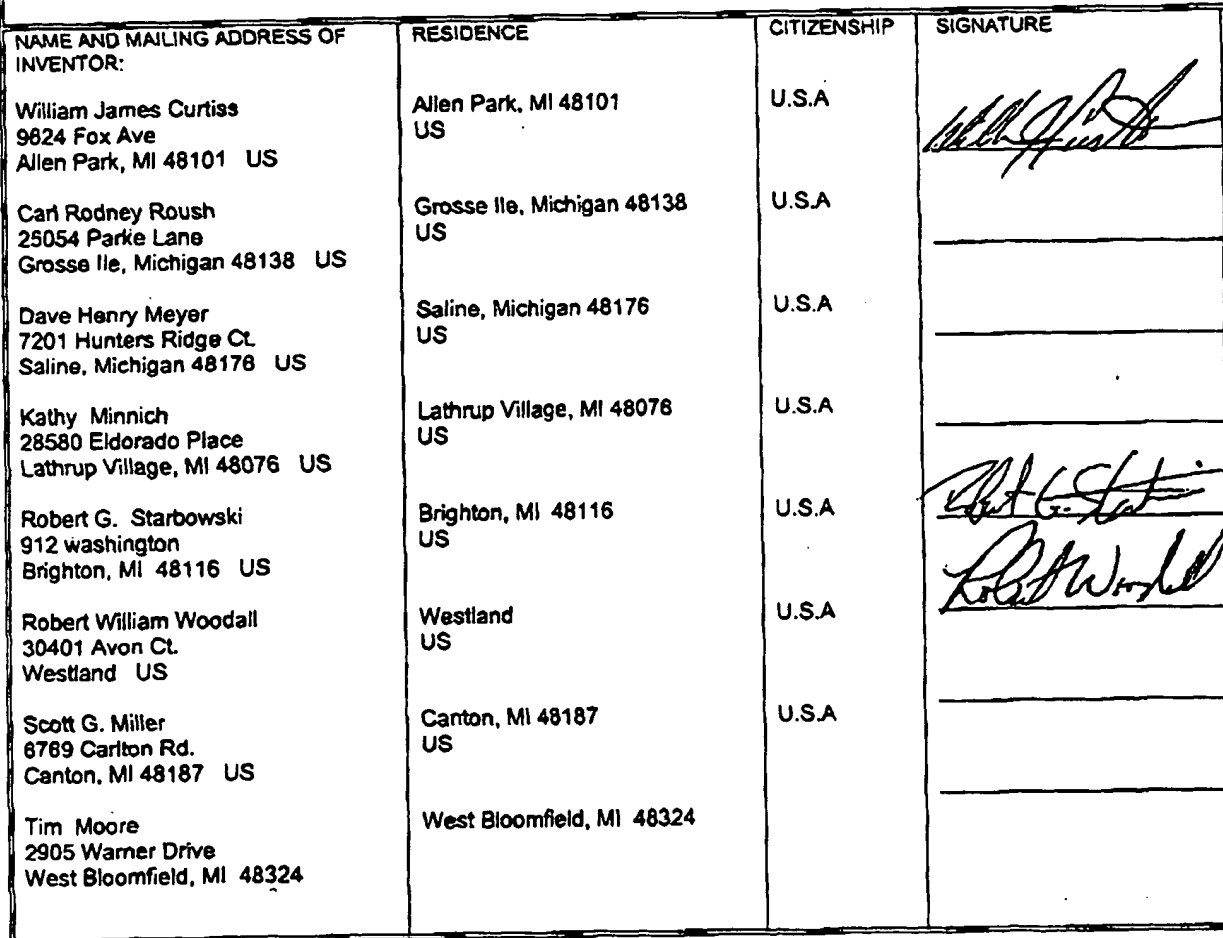 NAME AND MAILING ADDRESS OF INVENTOR:
RESIDENCE
CITIZENSHIP
SIGNATURE
William James Curtiss
9624 Fox Ave
Allen Park, MI 48101 US
Allen Park, MI 48101
US
U.S.A
Carl Rodney Roush
25054 Parke Lane
Grosse Ile, Michigan 48138 US
Grosse Ile, Michigan 48138
US
U.S.A
Dave Henry Meyer
7201 Hunters Ridge Ct.
Saline, Michigan 48176 US
Saline, Michigan 48176
US
U.S.A
Kathy Minnich
28580 Eldorado Place
Lathrup Village, MI 48076 US
Lathrup Village, MI 48076
US
U.S.A
Robert G. Starbowski
912 washington
Brighton, MI 48116 US
Brighton, MI 48116
US
U.S.A
Robert William Woodall
30401 Avon Ct.
Westland US
Westland
US
U.S.A
Robert Woodall
Scott G. Miller
6769 Carlton Rd.
Canton, MI 48187 US
Canton, MI 48187
US
U.S.A
Tim Moore
2905 Warner Drive
West Bloomfield, MI 48324
West Bloomfield, MI 48324